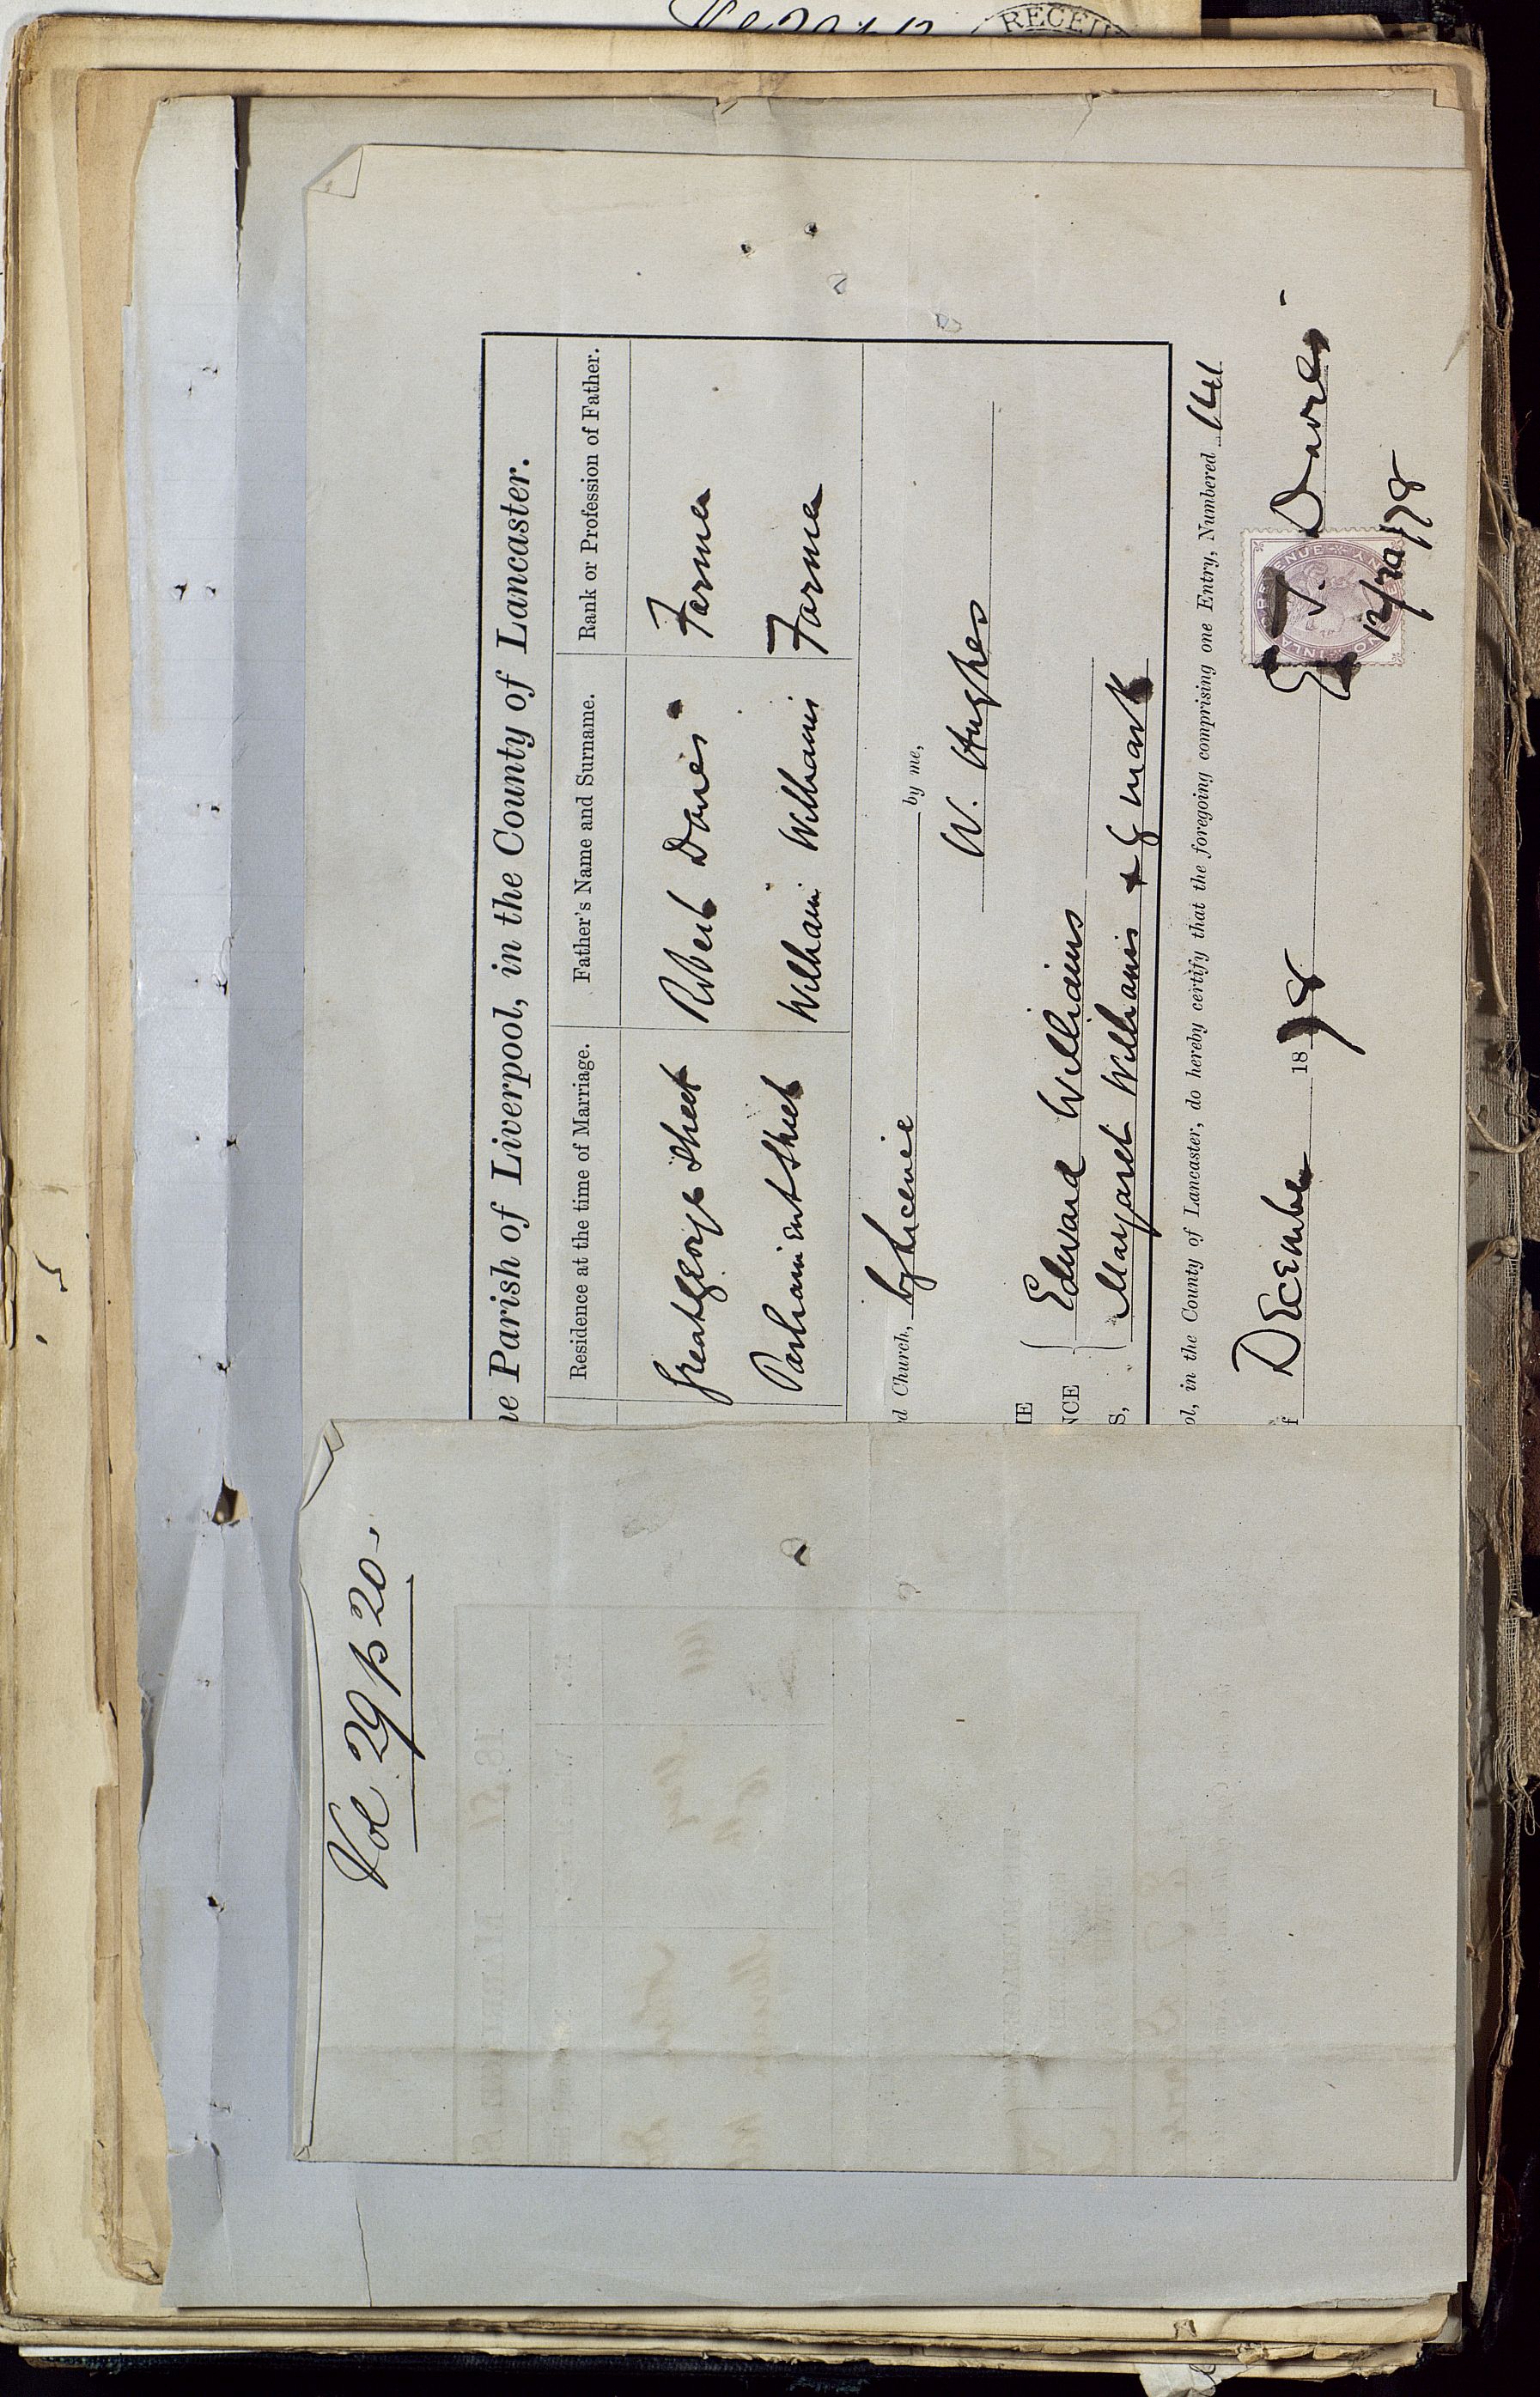 RECEIV
Vol 29 p 20
he Parish of Liverpool, in the County of Lancaster.
Residence at the time of Marriage. Father's Name and Surname. Rank or Profession of Father.
Great George Street Robert Davies Farmer
Parliament Street William Williams Farmer
d Church, by Licence by me,
W. Hughes
Edward Williams
Margaret Williams + mark
IE
NCE
S,
ol, in the County of Lancaster, do hereby certify that the foregoing comprising one Entry, Numbered 141
f December 1878
E. T. Davies
12/20/78